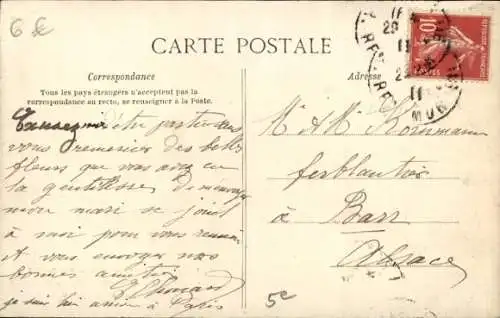 6 €
CARTE POSTALE
Correspondance
Tous les pays étrangers n'acceptent pas la
correspondance au recto, se renseigner à la Poste.
Adresse
10
Excusez moi d'être partie sans
vous remercier des belles
fleurs que vous avez eu
la gentillesse de m'envoyer
mon mari se joint
à moi pour vous
et vous envoyer nos
bonnes amitiés
je suis bien arrivée à Paris
M. & M. Kornmann
ferblantier
à Barr
Alsace
5c